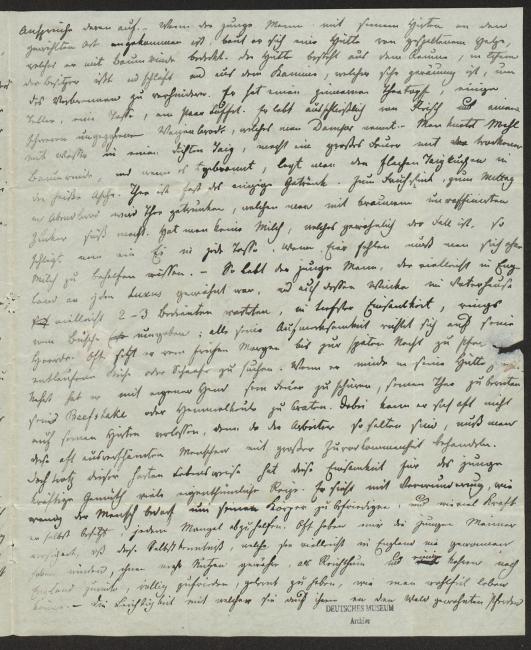 Ansprüche daran auf. – Wenn der junge Mann mit seinem Hirten an dem
gewählten Ort angekommen ist, baut er sich eine Hütte von gespaltenem Holze,
welches er mit Baumrinde bedeckt. Die Hütte besteht aus dem Raume, in welchem
der Besitzer ißt und schläft und aus dem Kamine, welcher sehr geräumig ist, um
das Verbrennen zu verhindern. Er hat einen zinnernen Theetopf, einige
Teller, eine Tasse, ein paar Löffel. Er lebt ausschließlich von Fleisch und einem
schweren ungegohrenen Waizenbrode, welches man Damper nennt. Man knetet Mehl
mit Wasser in einen dichten Taig, macht ein großes Feuer mit trockener
Baumrinde, und wenn es gebrannt, legt man den flachen Taigkuchen in
die heiße Asche. Thee ist fast das einzige Getränk. Zum Frühstück, zum Mittag
u Abendbrod wird Thee getrunken, welchen man mit braunem unraffinirten
Zucker süß macht. Hat man keine Milch, welches gewöhnlich der Fall ist, so
schlägt man ein Ei in jede Tasse. Wenn Eier fehlen muß man sich ohne
Milch zu behelfen wissen. – So lebt der junge Mann, der vielleicht in Eng-
land an jeden Luxus gewöhnt war, und auf dessen Winke im Vaterhause
vielleicht 2–3 Bedienten warteten, in tiefster Einsamkeit, rings
vom Busche umgeben; alle seine Aufmerksamkeit richtet sich auf seine
Heerde. Oft sitzt er vom frühen Morgen bis zur späten Nacht zu Pferde
entlaufene Kühe oder Schaafe zu suchen. Wenn er müde in seine Hütte
kehrt hat er mit eigener Hand sein Feuer zu schüren, seinen Thee zu bereiten
seine Beefstake oder Hammelkeule zu braten. Dabei kann er sich oft nicht
auf seinen Hirten verlassen, denn da die Arbeiter so selten sind, muß man
diese oft unverschämten Menschen mit großer Zuvorkommenheit behandeln.
Doch trotz dieser harten Lebensweise hat diese Einsamkeit für das junge
kräftige Gemüth viele eigenthümliche Reize. Er sieht mit Verwunderung, wie
wenig der Mensch bedarf um seinen Körper zu befriedigen, und wieviel Kraft
er selbst besitzt, jedem Mangel abzuhelfen. Oft haben mir die jungen Männer
versichert, daß diese Selbstkenntniß, welche sie vielleicht in England nie gewonnen
haben würden, ihnen mehr Nutzen gewähre als Reichthum und kehren nach
England zurück, völlig zufrieden, gelernt zu haben, wie man wohlfeil leben
könne. – Die Leichtigkeit mit welcher sie auf ihren an den Wald gewöhnten Pferden
DEUTSCHES MUSEUM
Archiv